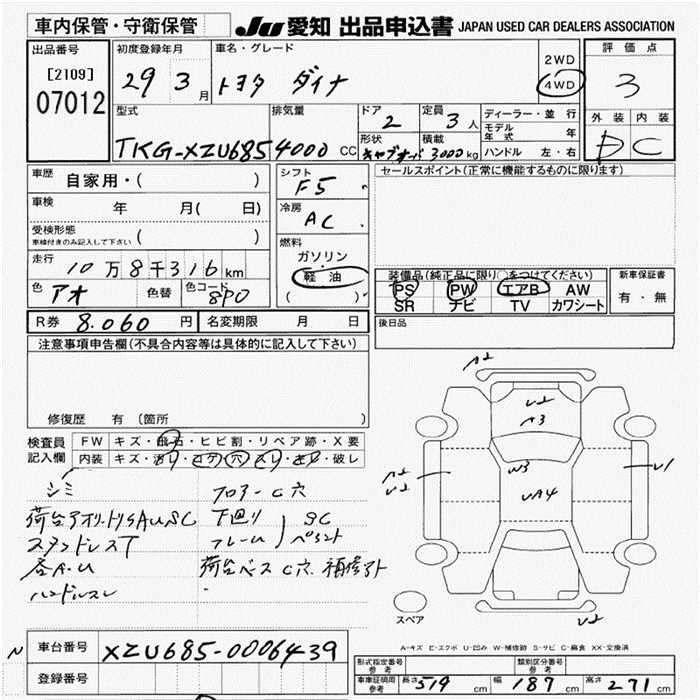 車内保管・守衛保管
JU 愛知 出品申込書 JAPAN USED CAR DEALERS ASSOCIATION
出品番号
[2109]
07012
初度登録年月
29 3月
車名・グレード
トヨタ ダイナ
2WD
4WD
評価点
3
外装 内装
D C
型式
TKG-XZU685
排気量
4000 CC
ドア
2
定員
3人
形状
キャブオーバ
積載
3000kg
ディーラー・並行
モデル年式 年
ハンドル 左・右
車歴 自家用・( )
車検 年 月( 日)
受検形態
車検付きのみ記入して下さい ( )
走行 10万8千316km
色 アオ 色替 色コード 8P0
シフト
F5
冷房
AC
燃料
ガソリン
軽油
( )
セールスポイント(正常に機能するものに限ります)
装備品(純正品に限り○をつけてください)
PS PW エアB AW
SR ナビ TV カワシート
新車保証書
有・無
R券 8.060円 名変期限 月 日
後日品
注意事項申告欄(不具合内容等は具体的に記入して下さい)
修復歴 有(箇所 )
検査員記入欄
FW キズ・飛石・ヒビ割・リペア跡・X要
内装 キズ・汚レ・コゲ・穴・スレ・切レ・破レ
シミ フロアーC穴
荷台アオリ.トリイAUSC 下廻り SC
スタンドレスT フレーム ペイント
各A.U 荷台ベースC穴.補修アト
ハンドルスレ
A2
U2
A3
W3
UA4
A2
U2
U1
U2
スペア
A-キズ E-エクボ U-凹み W-補修跡 S-サビ C-腐食 XX-交換済
N
車台番号 XZU685-0006439
登録番号
形式指定番号 参考
類別区分番号 参考
車庫証明用 参考 長さ 519cm 幅 187cm 高さ 271cm